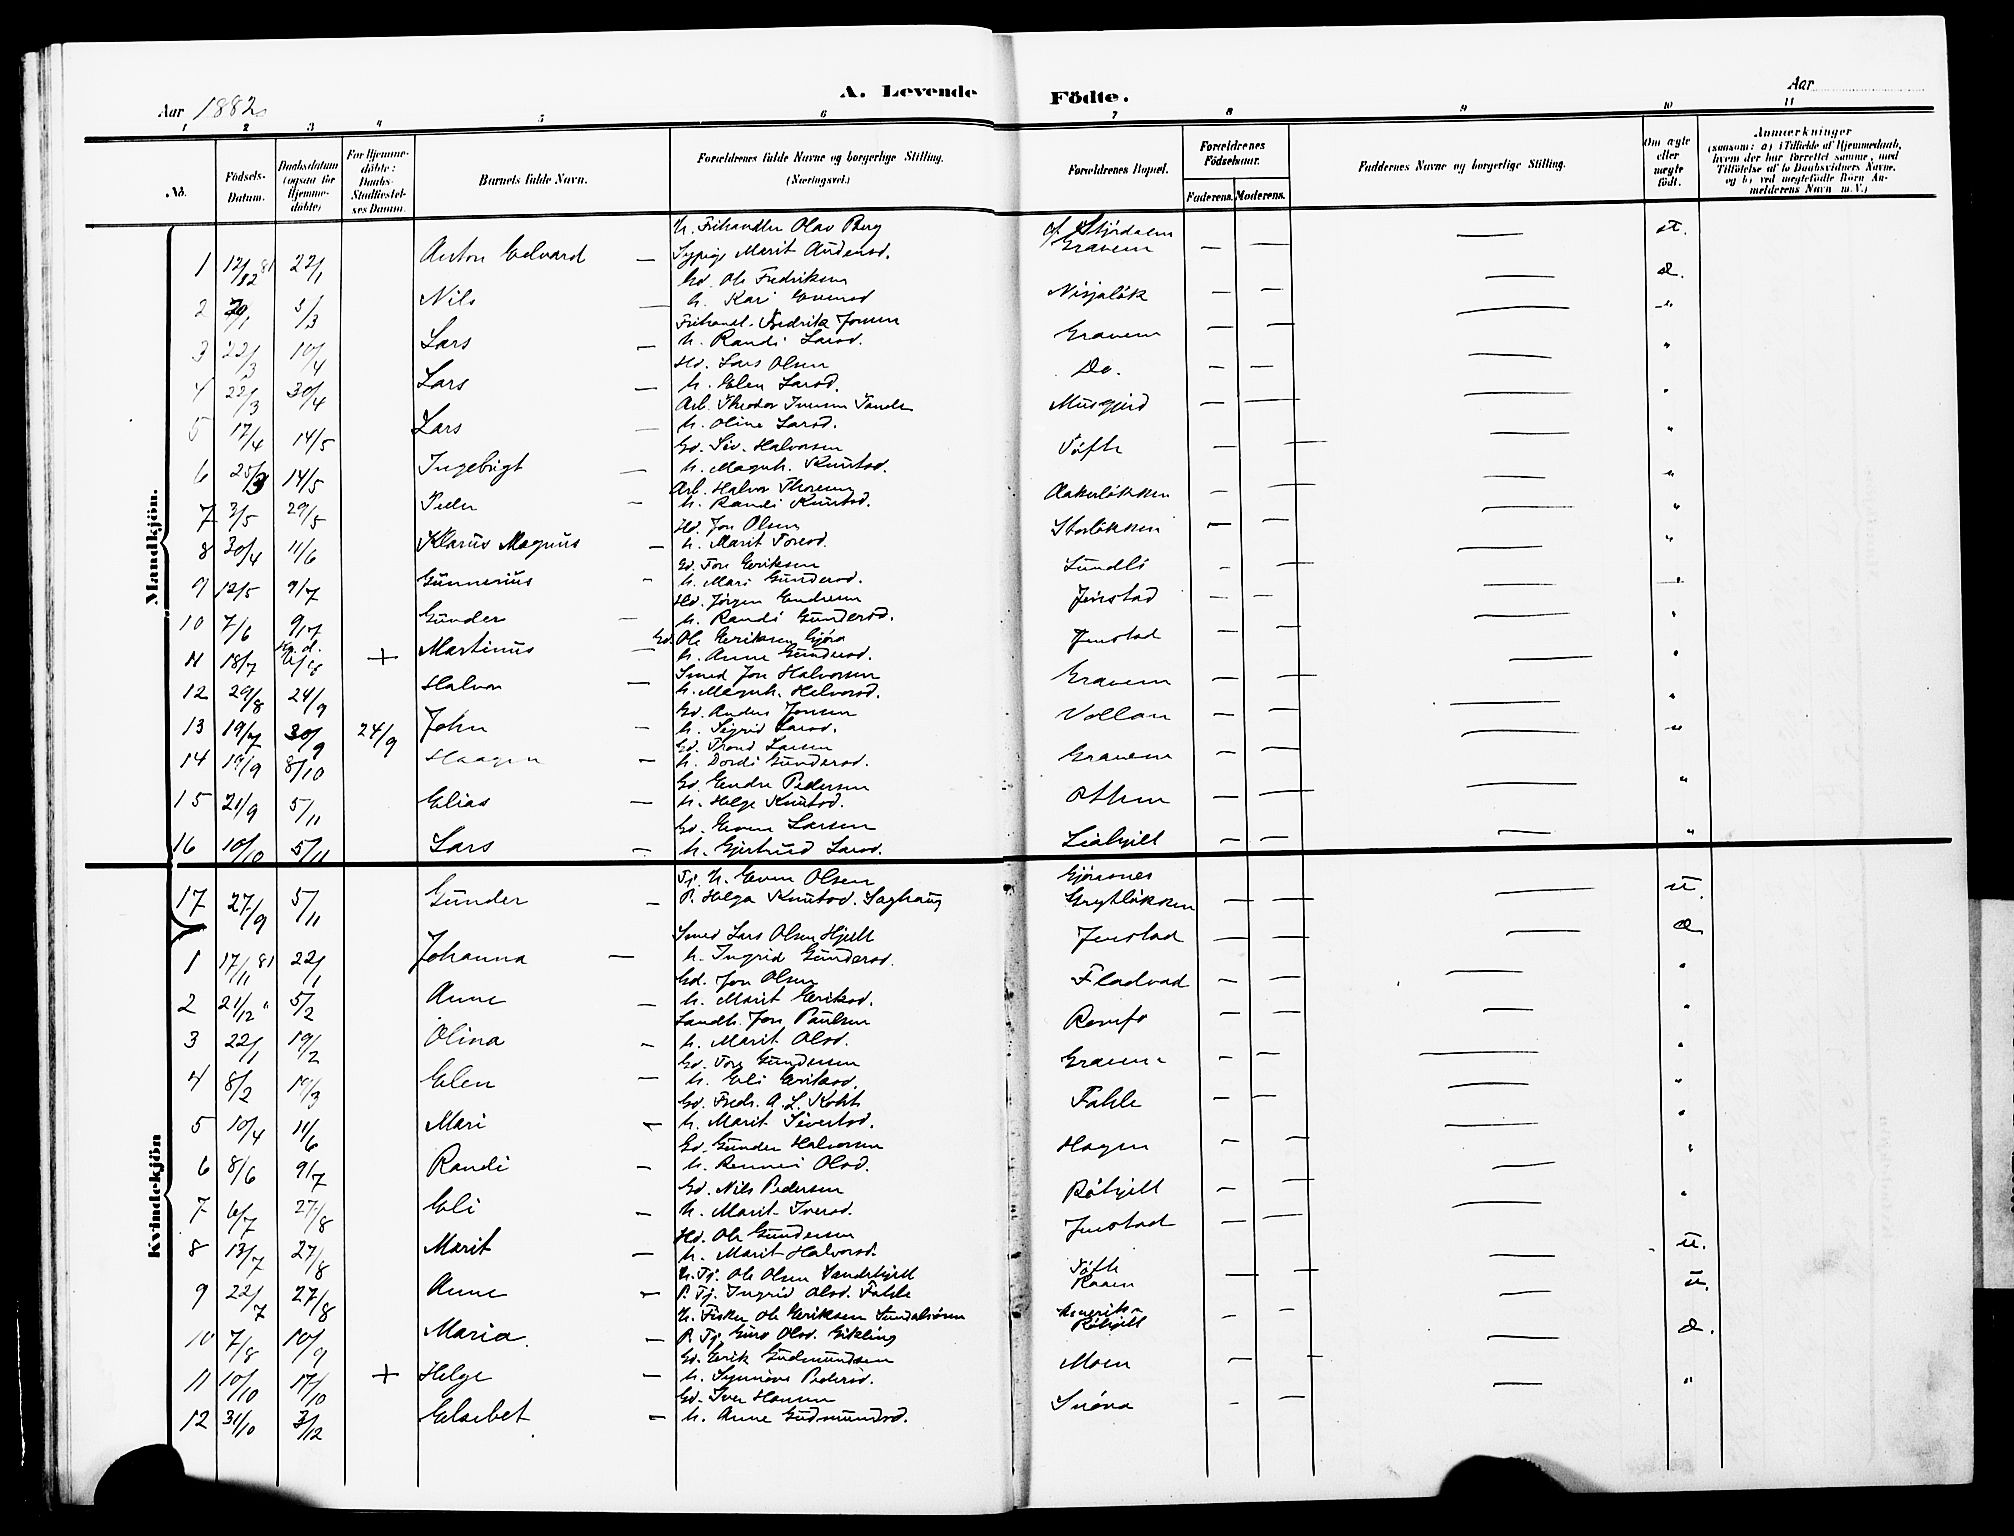 A. Levende Födte.
Aar 1882
Aar
1 2 3 4 5 6 7 8 9 10 11
No.
Födsels-Datum.
Daabsdatum (ogsaa för Hjemmedöbte)
For Hjemmedöbte: Daabs-Stadfæstelses Datum.
Barnets fulde Navn.
Forældrenes fulde Navne og borgerlige Stilling. (Næringsvei.)
Forældrenes Bopæl.
Forældrenes Födselsaar.
Faderens. Moderens.
Faddernes Navne og borgerlige Stilling.
Om ægte eller uægte födt.
Anmærkninger
(saasom: a) i Tilfælde af Hjemmedaab, hvem der har forrettet samme, med Tilföielse af to Daabsvidners Navne, og b) ved uægtefödte Börn Anmelderens Navn m. V.)
Mandkjön.
U. Frihandler Olav Berg
1 12/82 81 22/1 Anton Edvard — Sypige Marit Andersd. Gravem — —
Gd. Ole Fredriksen
2 3/3 Nils — h. Kari Evensd Nisjalök — — æ.
Frihandl. Fredrik Jonsen
3 22/3 10/4 Lars — h. Randi Larsd. Gravem — — "
Hd. Lars Olsen
4 22/3 30/4 Lars — h. Elen Larsd. Do. — — "
Arb. Theodor Iversen
5 17/4 14/5 Lars — h. Oline Larsd. Musgjerd — — "
Gd. Siv. Halvorsen
6 25/3 14/5 Ingebrigt — h. Magnh. Knutsd. Töfte — — "
Arb. Halvor Thoresen
7 3/5 29/5 Peder — h. Randi Knutsd. Aakerlökken — — "
Hd. Jon Olsen
8 30/4 11/6 Klarus Magnus — h. Marit Toresd. Storlökken — — "
Gd. Tore Eriksen
9 12/5 9/7 Gunnerius — h. Mari Gundersd. Lundli — — "
Hd. Jörgen Endresen
10 7/6 9/7 Gunder — h. Randi Gundersd. Jenstad — — "
Gd. Ole Eriksen Gjöra
11 18/7 + Martinus — h. Anne Gundersd. Jenstad — — "
Smed Jon Halvorsen
12 29/8 24/9 Halvor — h. Magnh. Halvorsd. Gravem — — "
Gd. Anders Jonsen
13 19/7 30/9 24/9 John — h. Sigrid Larsd. Vollan — — "
Gd. Trond Larsen
14 19/9 8/10 Haagen — h. Dordi Gundersd. Gravem — — "
Gd. Endre Pedersen
15 21/9 5/11 Elias — h. Helge Knutsd. Ottem — — "
Gd. Even Larsen
16 10/10 5/11 Lars — h. Gjertrud Larsd. Liahjell — — "
Tj. U. Even Olsen Gjörsnes
17 27/9 5/11 Gunder — P. Helga Knutsd. Saghaug Grytlökken — — u.
Kvindekjön
Smed Lars Olsen Hjell
1 17/11 81 22/1 Johanna — h. Ingrid Gundersd. Jenstad — — æ
Gd. Jon Olsen
2 21/12 " 5/2 Anne — h. Marit Eriksd. Fladvad — — "
Landh. Jon Paulsen
3 22/1 19/2 Olina — h. Marit Olsd. Romfo — — "
Gd. Tore Gundersen
4 8/2 19/3 Elen — h. Eli Eriksd. Gravem — — "
Gd. Fredr. A. L. Koht
5 10/4 11/6 Mari — h. Marit Sivertsd. Fahle — — "
Gd. Gunder Halvorsen
6 8/6 9/7 Randi — h. Rennei Olsd. Hagen — — "
Gd. Nils Pedersen
7 6/7 27/8 Eli — h. Marit Iversd. Röhjell — — "
Hd. Ole Gundersen
8 13/7 27/8 Marit — h. Marit Halvorsd. Jenstad — — "
U. Tj. Ole Olsen Sandehjell Töfte
9 22/7 27/8 Anne — P. Tj. Ingrid Olsd. Fahle Raaen — — u.
U. Fisker Ole Eriksen Sundalsören Amerika
10 7/8 10/9 Maria — P. Tj. Guro Olsd. Eikling Röhjell — — u.
Gd. Erik Gudmundsen
11 10/10 17/10 + Helge — h. Synnöve Pedersd. Moen — — æ.
Gd. Iver Hansen
12 31/10 3/12 Elsebet — h. Anne Gudmundsd. Snöva — — "